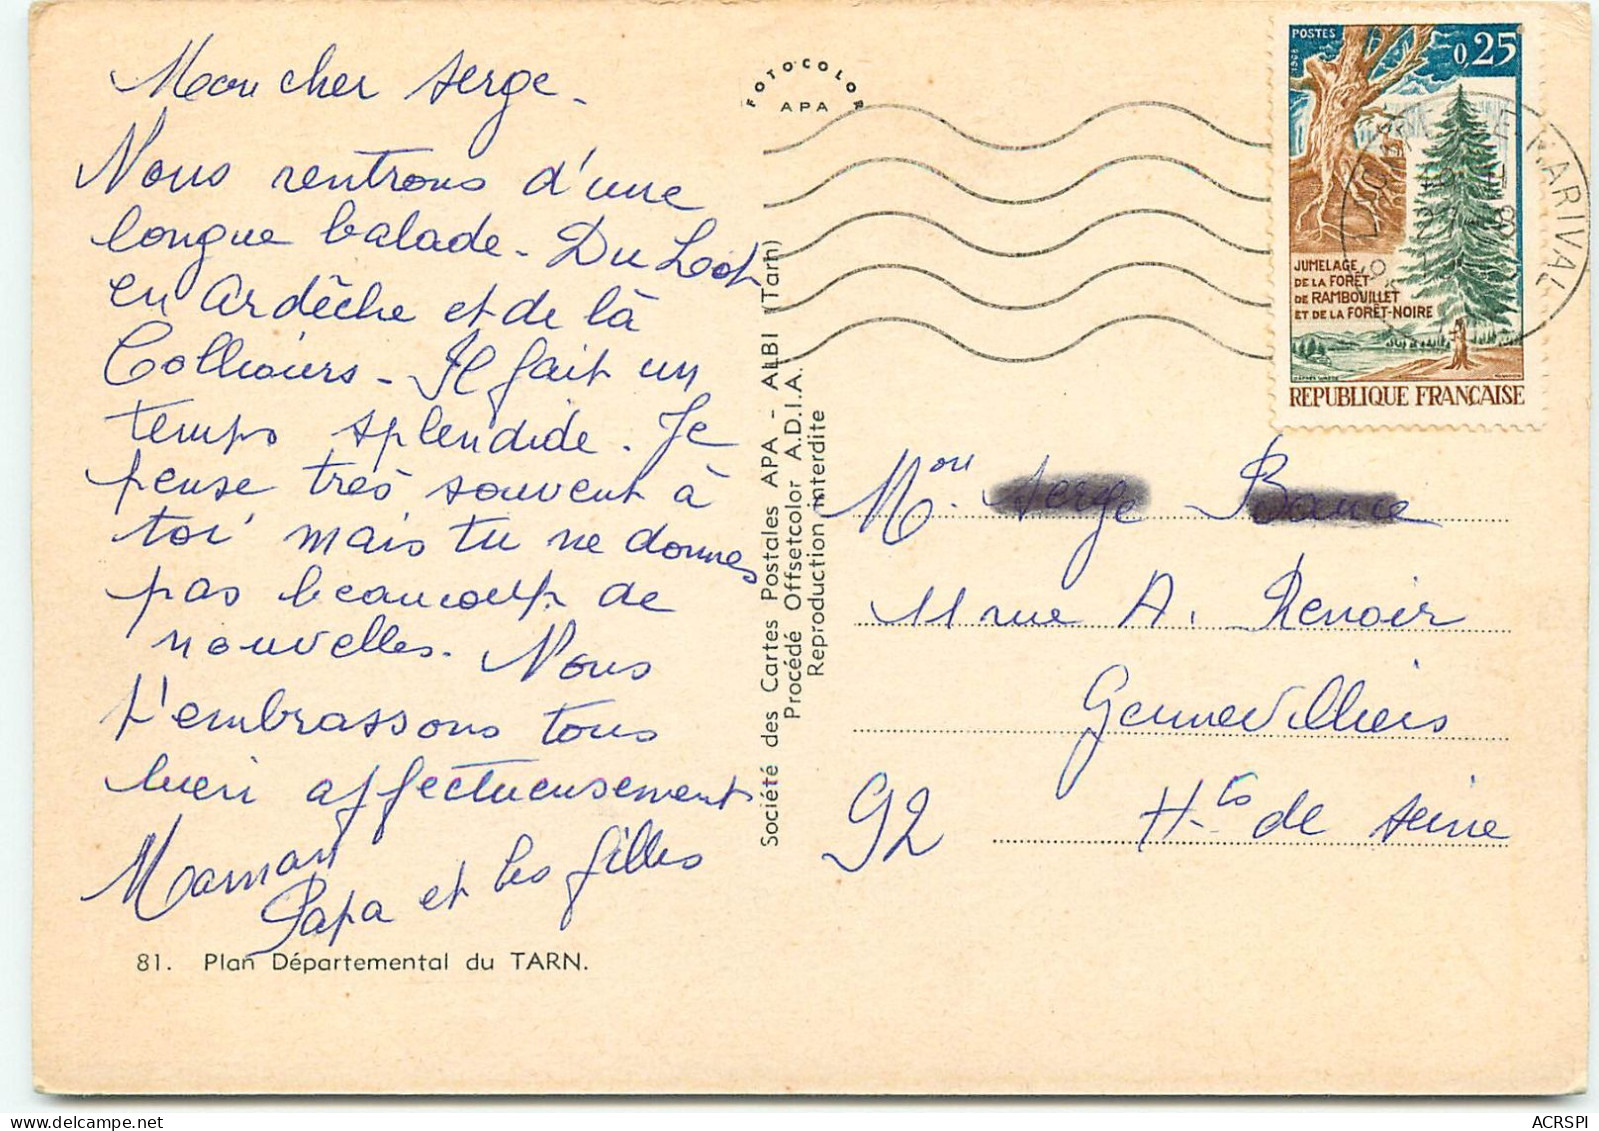 Mon cher serge.
Nous rentrons d'une
longue balade. Du Lot
en Ardèche et de là
Collioures. Il fait un
temps splendide. Je
pense très souvent à
toi mais tu ne donnes
pas beaucoup de
nouvelles. Nous
t'embrassons tous
bien affectueusement
Maman
Papa et les filles
81. Plan Départemental du TARN.
FOTOCOLOR
APA
Société des Cartes Postales APA - ALBI (Tarn)
Procédé Offsetcolor A.D.I.A.
Reproduction interdite
POSTES
1968
0,25
JUMELAGE
DE LA FORÊT
DE RAMBOUILLET
ET DE LA FORÊT-NOIRE
REPUBLIQUE FRANÇAISE
MARIVAL
Mon. Serge
11 rue A. Renoir
Gennevilliers
92 Hts de Seine
ACRSPI